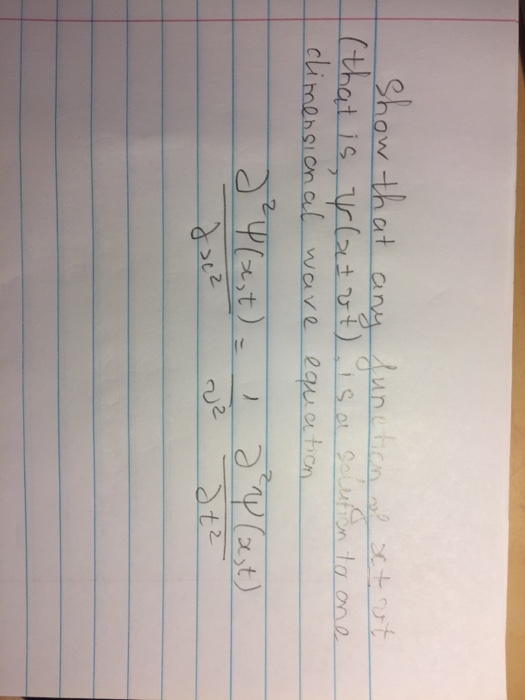 Show that any function of x ± vt
(that is, ψ(x ± vt), is a solution to one
dimensional wave equation
∂²ψ(x,t) = 1 ∂²ψ(x,t)
∂x² v² ∂t²